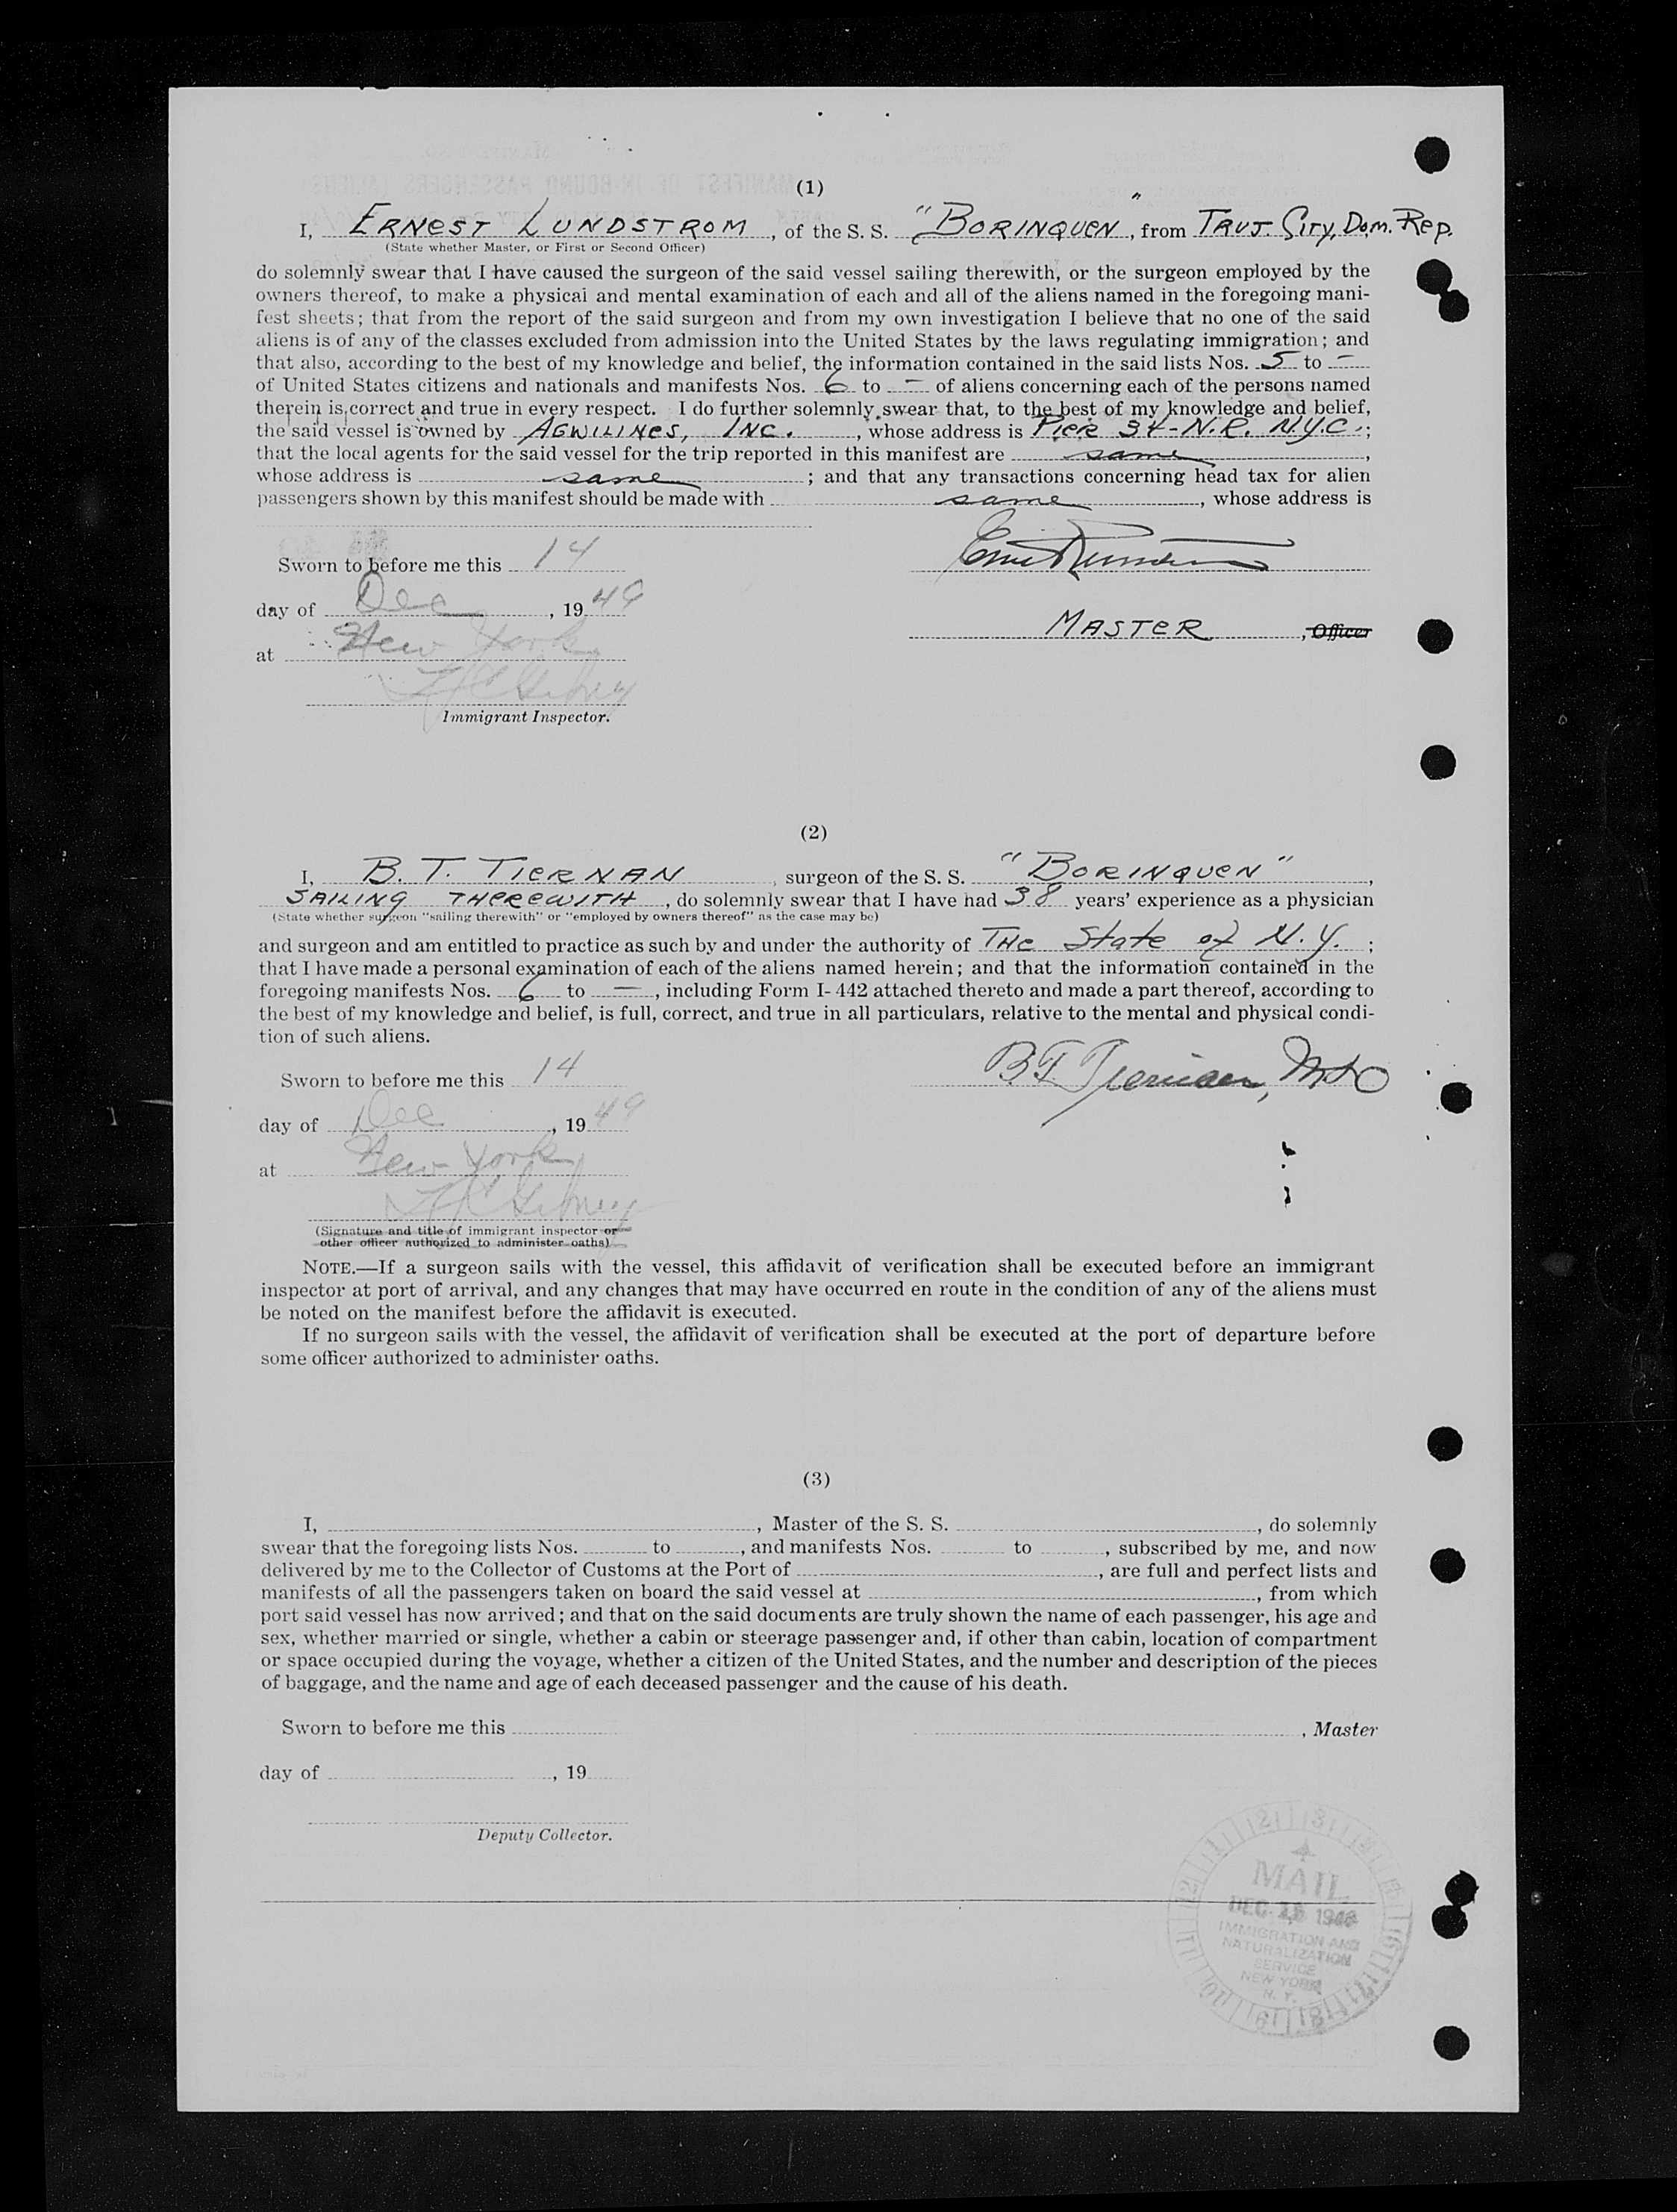 (1)
I, ERNEST LUNDSTROM, of the S. S. "BORINQUEN", from TRUJ. CITY, DOM. REP.
(State whether Master, or First or Second Officer)
do solemnly swear that I have caused the surgeon of the said vessel sailing therewith, or the surgeon employed by the
owners thereof, to make a physical and mental examination of each and all of the aliens named in the foregoing mani-
fest sheets; that from the report of the said surgeon and from my own investigation I believe that no one of the said
aliens is of any of the classes excluded from admission into the United States by the laws regulating immigration; and
that also, according to the best of my knowledge and belief, the information contained in the said lists Nos. 5 to —
of United States citizens and nationals and manifests Nos. 6 to — of aliens concerning each of the persons named
therein is correct and true in every respect. I do further solemnly swear that, to the best of my knowledge and belief,
the said vessel is owned by AGWILINES, INC., whose address is PIER 34-N.R. N.Y.C.;
that the local agents for the said vessel for the trip reported in this manifest are same,
whose address is same; and that any transactions concerning head tax for alien
passengers shown by this manifest should be made with same, whose address is
Sworn to before me this 14
day of Dec, 1949
MASTER, Officer
at New York
Immigrant Inspector.
(2)
I, B. T. TIERNAN, surgeon of the S. S. "BORINQUEN",
SAILING THEREWITH, do solemnly swear that I have had 38 years' experience as a physician
(State whether surgeon "sailing therewith" or "employed by owners thereof" as the case may be)
and surgeon and am entitled to practice as such by and under the authority of THE State of N.Y.;
that I have made a personal examination of each of the aliens named herein; and that the information contained in the
foregoing manifests Nos. 6 to —, including Form I-442 attached thereto and made a part thereof, according to
the best of my knowledge and belief, is full, correct, and true in all particulars, relative to the mental and physical condi-
tion of such aliens.
Sworn to before me this 14
B T Tiernan, M D
day of Dec, 1949
at New York
(Signature and title of immigrant inspector or
other officer authorized to administer oaths)
NOTE.—If a surgeon sails with the vessel, this affidavit of verification shall be executed before an immigrant
inspector at port of arrival, and any changes that may have occurred en route in the condition of any of the aliens must
be noted on the manifest before the affidavit is executed.
If no surgeon sails with the vessel, the affidavit of verification shall be executed at the port of departure before
some officer authorized to administer oaths.
(3)
I, , Master of the S. S. , do solemnly
swear that the foregoing lists Nos. to , and manifests Nos. to , subscribed by me, and now
delivered by me to the Collector of Customs at the Port of , are full and perfect lists and
manifests of all the passengers taken on board the said vessel at , from which
port said vessel has now arrived; and that on the said documents are truly shown the name of each passenger, his age and
sex, whether married or single, whether a cabin or steerage passenger and, if other than cabin, location of compartment
or space occupied during the voyage, whether a citizen of the United States, and the number and description of the pieces
of baggage, and the name and age of each deceased passenger and the cause of his death.
Sworn to before me this
, Master
day of , 19
Deputy Collector.
MAIL
DEC
IMMIGRATION AND
NATURALIZATION
SERVICE
NEW YORK
N. Y.